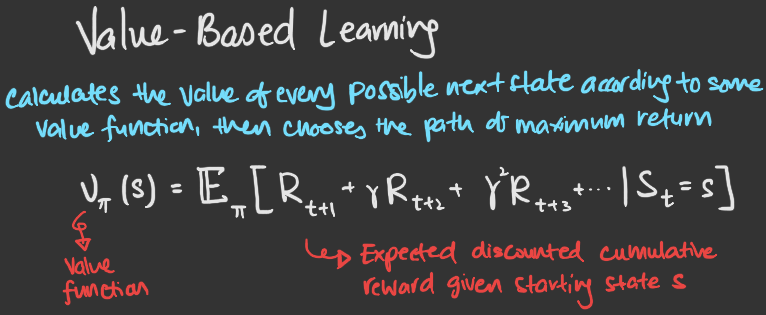 Value-Based Learning
calculates the value of every possible next state according to some
value function, then chooses the path of maximum return
υ_π(s) = 𝔼_π[R_{t+1} + γR_{t+2} + γ²R_{t+3} + ... | S_t = s]
Value
function
Expected discounted cumulative
reward given starting state s